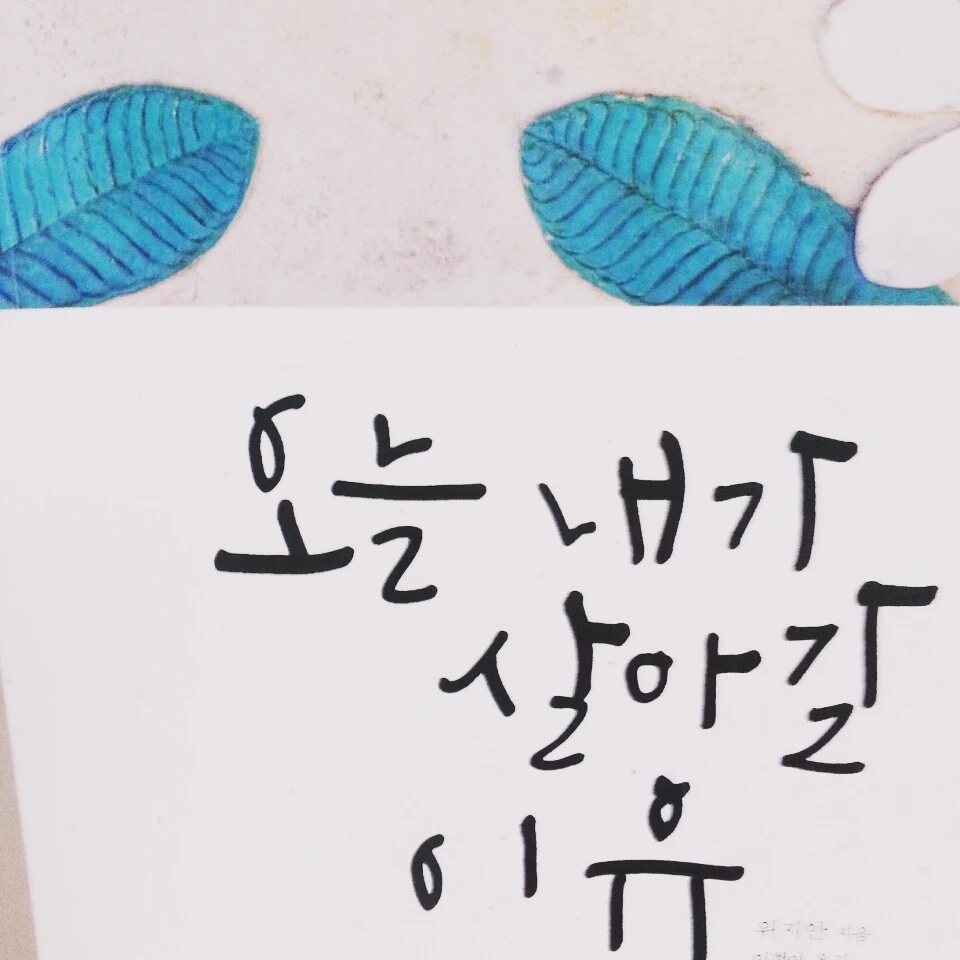 오늘 내가
살아갈
이유
위지안 지음